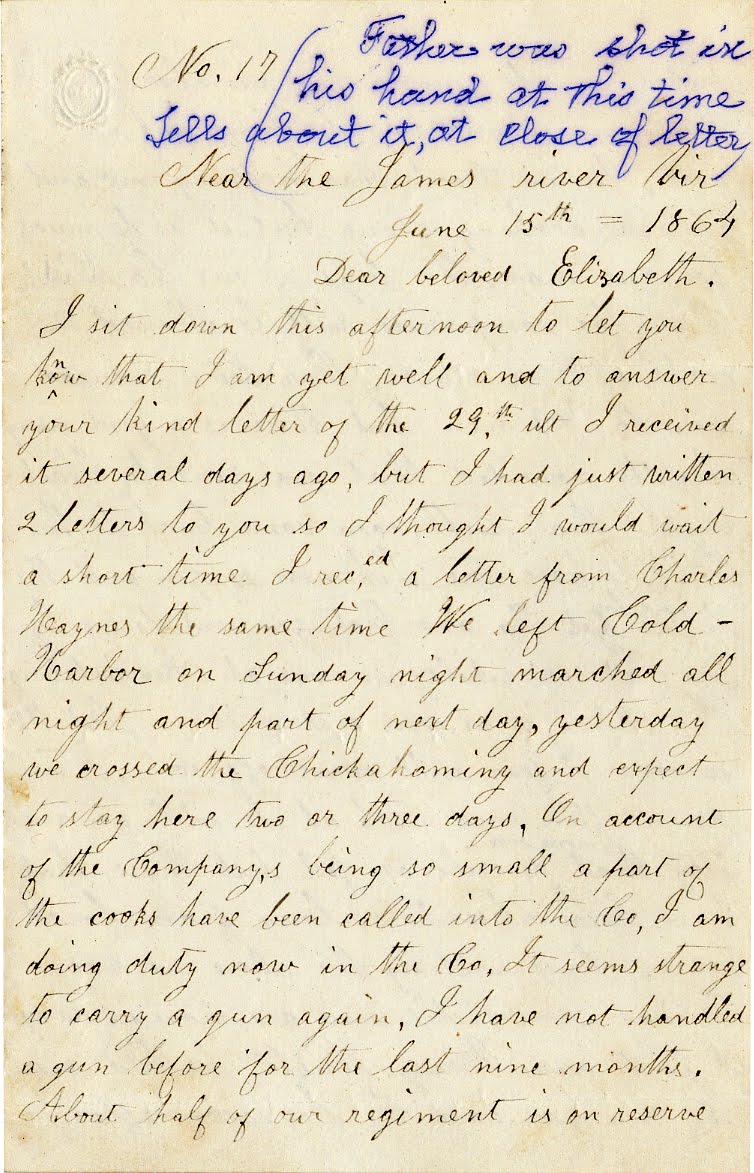 No. 17 (Father was shot in
his hand at this time
Tells about it, at close of letter)
Near the James river Vir
June 15th = 1864
Dear beloved Elizabeth.
I sit down this afternoon to let you
know that I am yet well and to answer
your kind letter of the 29.th ult I received
it several days ago, but I had just written
2 letters to you so I thought I would wait
a short time. I rec,ed a letter from Charles
Haynes the same time We left Cold-
Harbor on Sunday night marched all
night and part of next day, yesterday
we crossed the Chickahominy and expect
to stay here two or three days. On account
of the Company,s being so small a part of
the cooks have been called into the Co, I am
doing duty now in the Co, It seems strange
to carry a gun again, I have not handled
a gun before for the last nine months.
About half of our regiment is on reserve